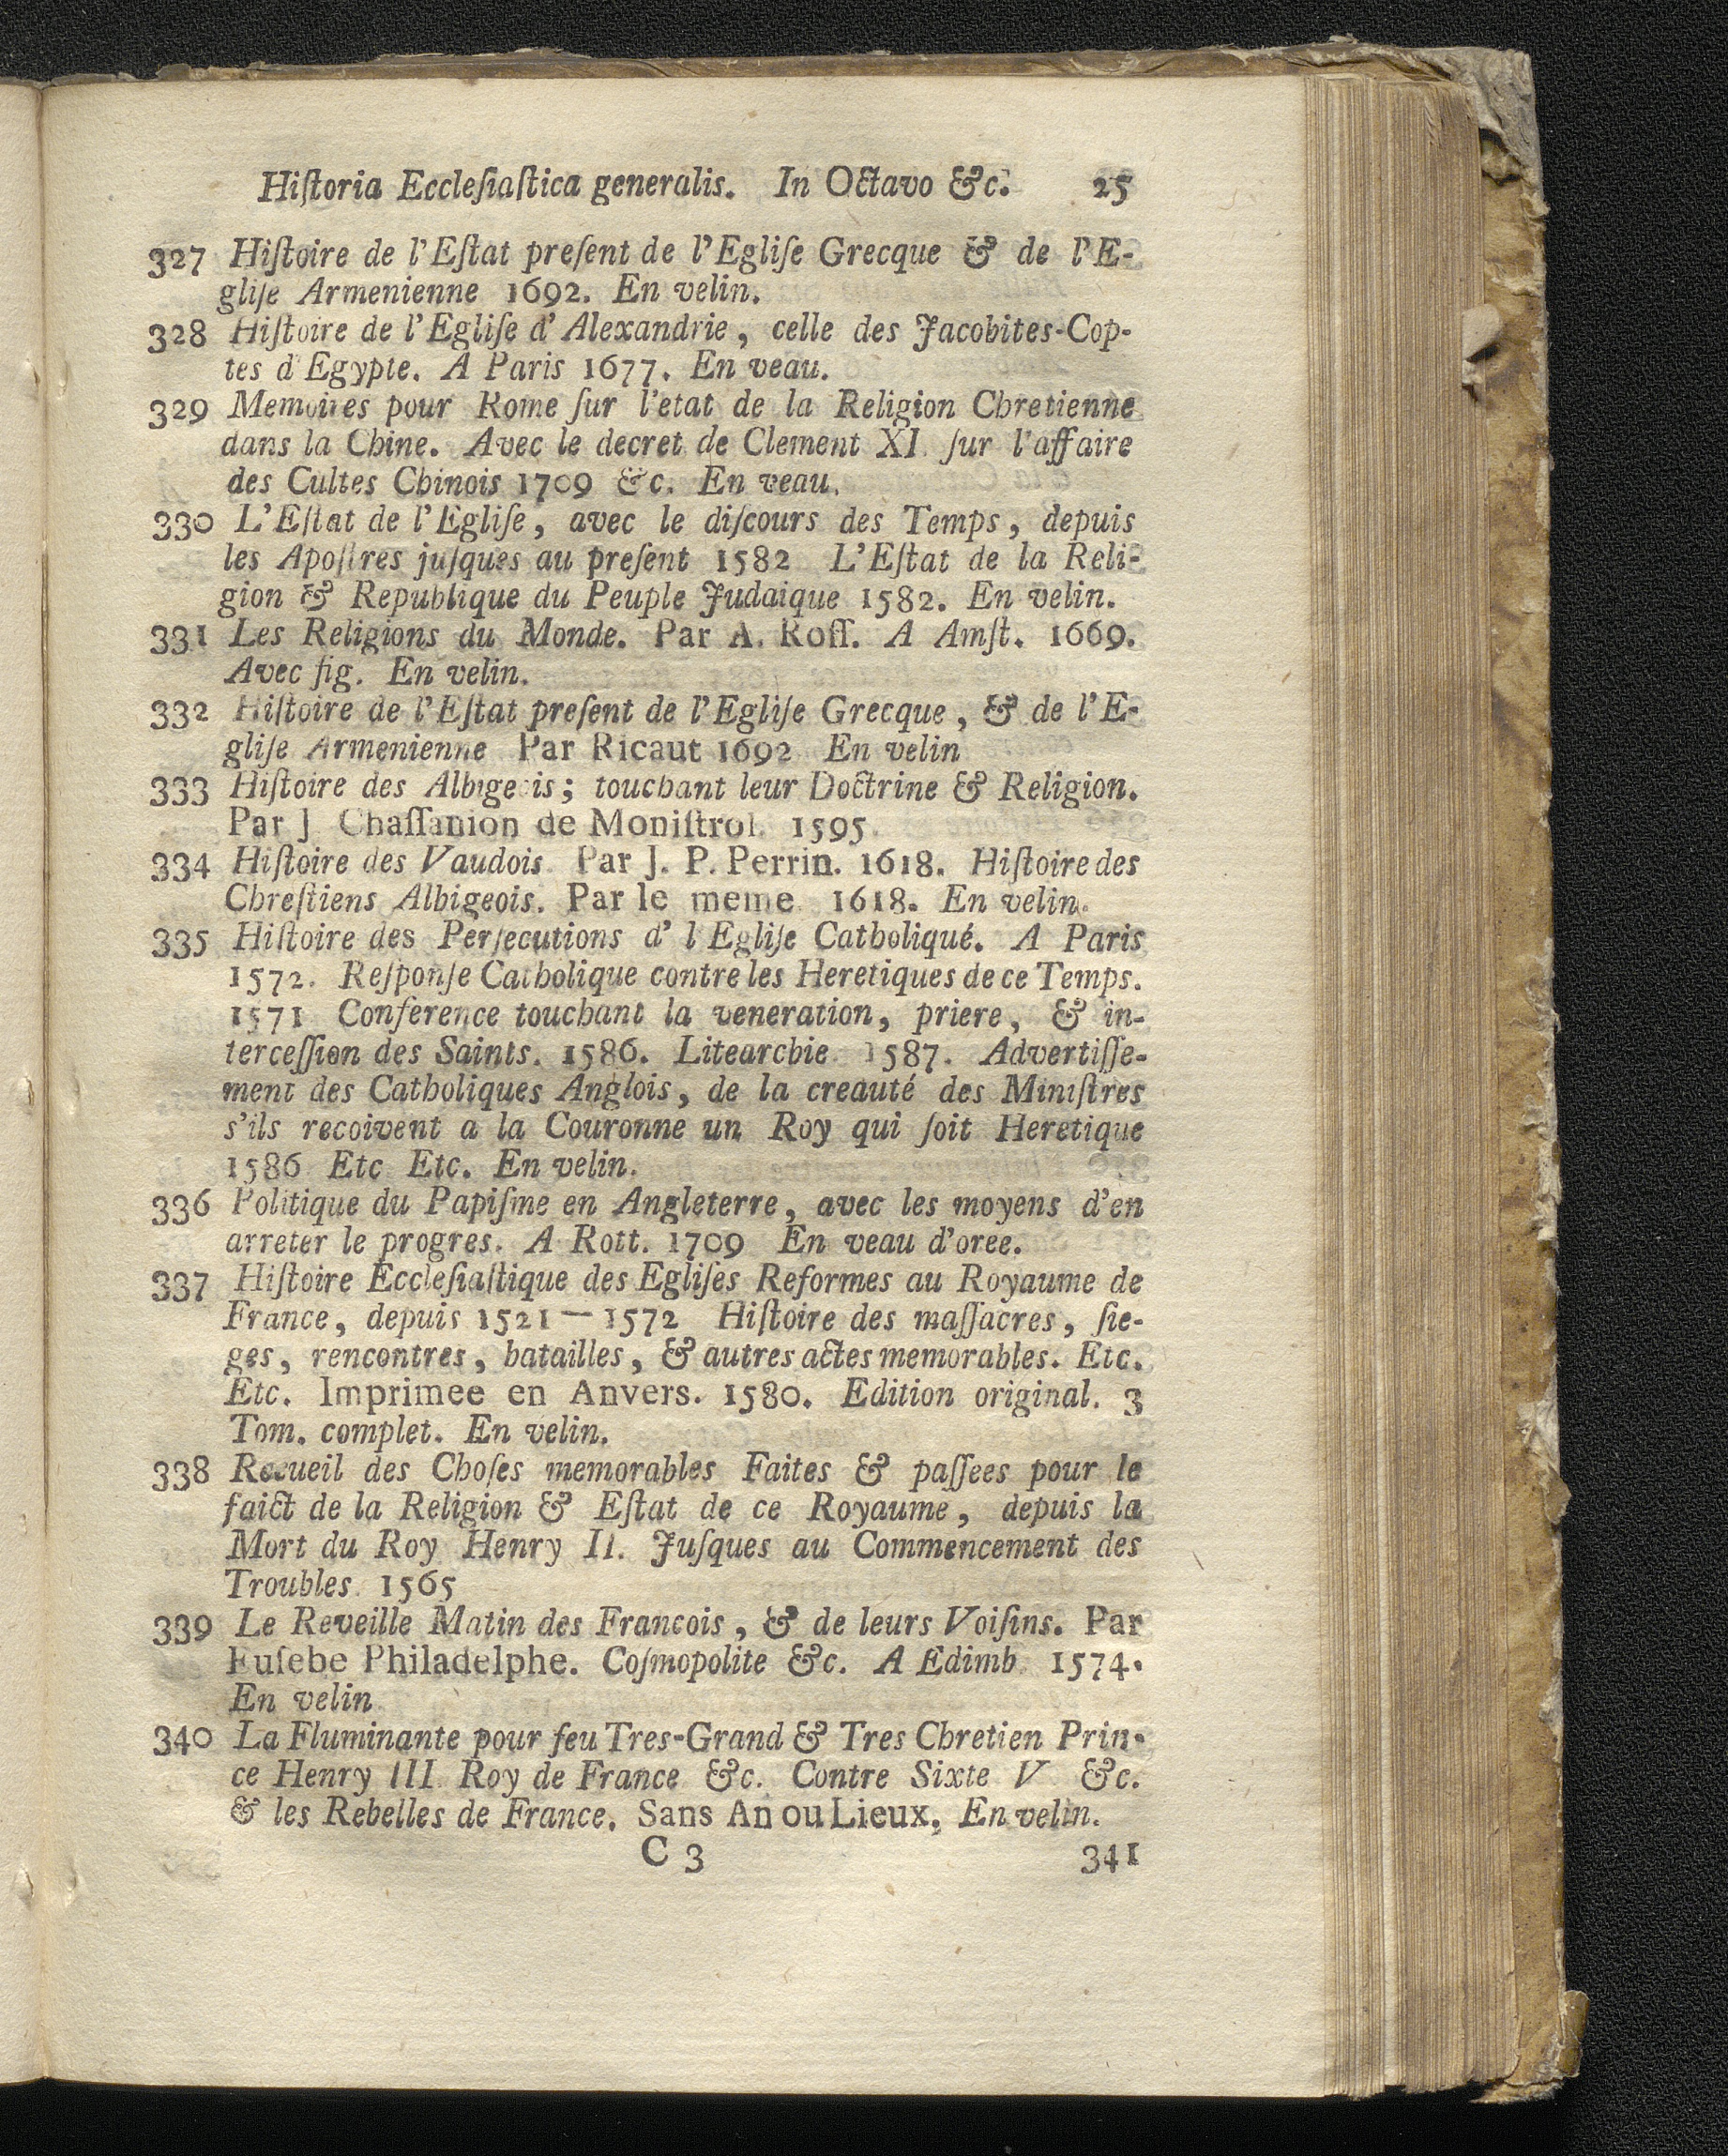 Hiſtoria Eccleſiaſtica generalis. In Octavo &c. 25
327 Hiſtoire de l'Eſtat preſent de l'Egliſe Grecque & de l'E-
gliſe Armenienne 1692. En velin.
328 Hiſtoire de l'Egliſe d'Alexandrie, celle des Jacobites-Cop-
tes d'Egypte. A Paris 1677. En veau.
329 Memoires pour Rome ſur l'etat de la Religion Chretienne
dans la Chine. Avec le decret de Clement XI ſur l'affaire
des Cultes Chinois 1709 &c. En veau.
330 L'Eſtat de l'Egliſe, avec le diſcours des Temps, depuis
les Apoſtres juſques au preſent 1582 L'Eſtat de la Reli-
gion & Republique du Peuple Judaique 1582. En velin.
331 Les Religions du Monde. Par A. Roſſ. A Amſt. 1669.
Avec fig. En velin.
332 Hiſtoire de l'Eſtat preſent de l'Egliſe Grecque, & de l'E-
gliſe Armenienne Par Ricaut 1692 En velin
333 Hiſtoire des Albigeois; touchant leur Doctrine & Religion.
Par J Chaſſanion de Moniſtrol. 1595
334 Hiſtoire des Vaudois Par J. P. Perrin. 1618. Hiſtoire des
Chreſtiens Albigeois. Par le meme 1618. En velin.
335 Hiſtoire des Perſecutions d'l Egliſe Catholiqué. A Paris
1572. Reſponſe Catholique contre les Heretiques de ce Temps.
1571 Conference touchant la veneration, priere, & in-
terceſſion des Saints. 1586. Litearchie 1587. Advertiſſe-
ment des Catholiques Anglois, de la creauté des Miniſtres
s'ils recoivent a la Couronne un Roy qui ſoit Heretique
1586 Etc Etc. En velin.
336 Politique du Papiſme en Angleterre, avec les moyens d'en
arreter le progres. A Rott. 1709 En veau d'oree.
337 Hiſtoire Eccleſiaſtique des Egliſes Reformes au Royaume de
France, depuis 1521—1572 Hiſtoire des maſſacres, ſie-
ges, rencontres, batailles, & autres actes memorables. Etc.
Etc. Imprimee en Anvers. 1580. Edition original. 3
Tom. complet. En velin.
338 Recueil des Choſes memorables Faites & paſſees pour le
faict de la Religion & Eſtat de ce Royaume, depuis la
Mort du Roy Henry II. Juſques au Commencement des
Troubles. 1565
339 Le Reveille Matin des Francois, & de leurs Voiſins. Par
Euſebe Philadelphe. Coſmopolite &c. A Edimb. 1574.
En velin
340 La Fluminante pour feu Tres-Grand & Tres Chretien Prin-
ce Henry III. Roy de France &c. Contre Sixte V &c.
& les Rebelles de France. Sans An ou Lieux. En velin.
C 3 341